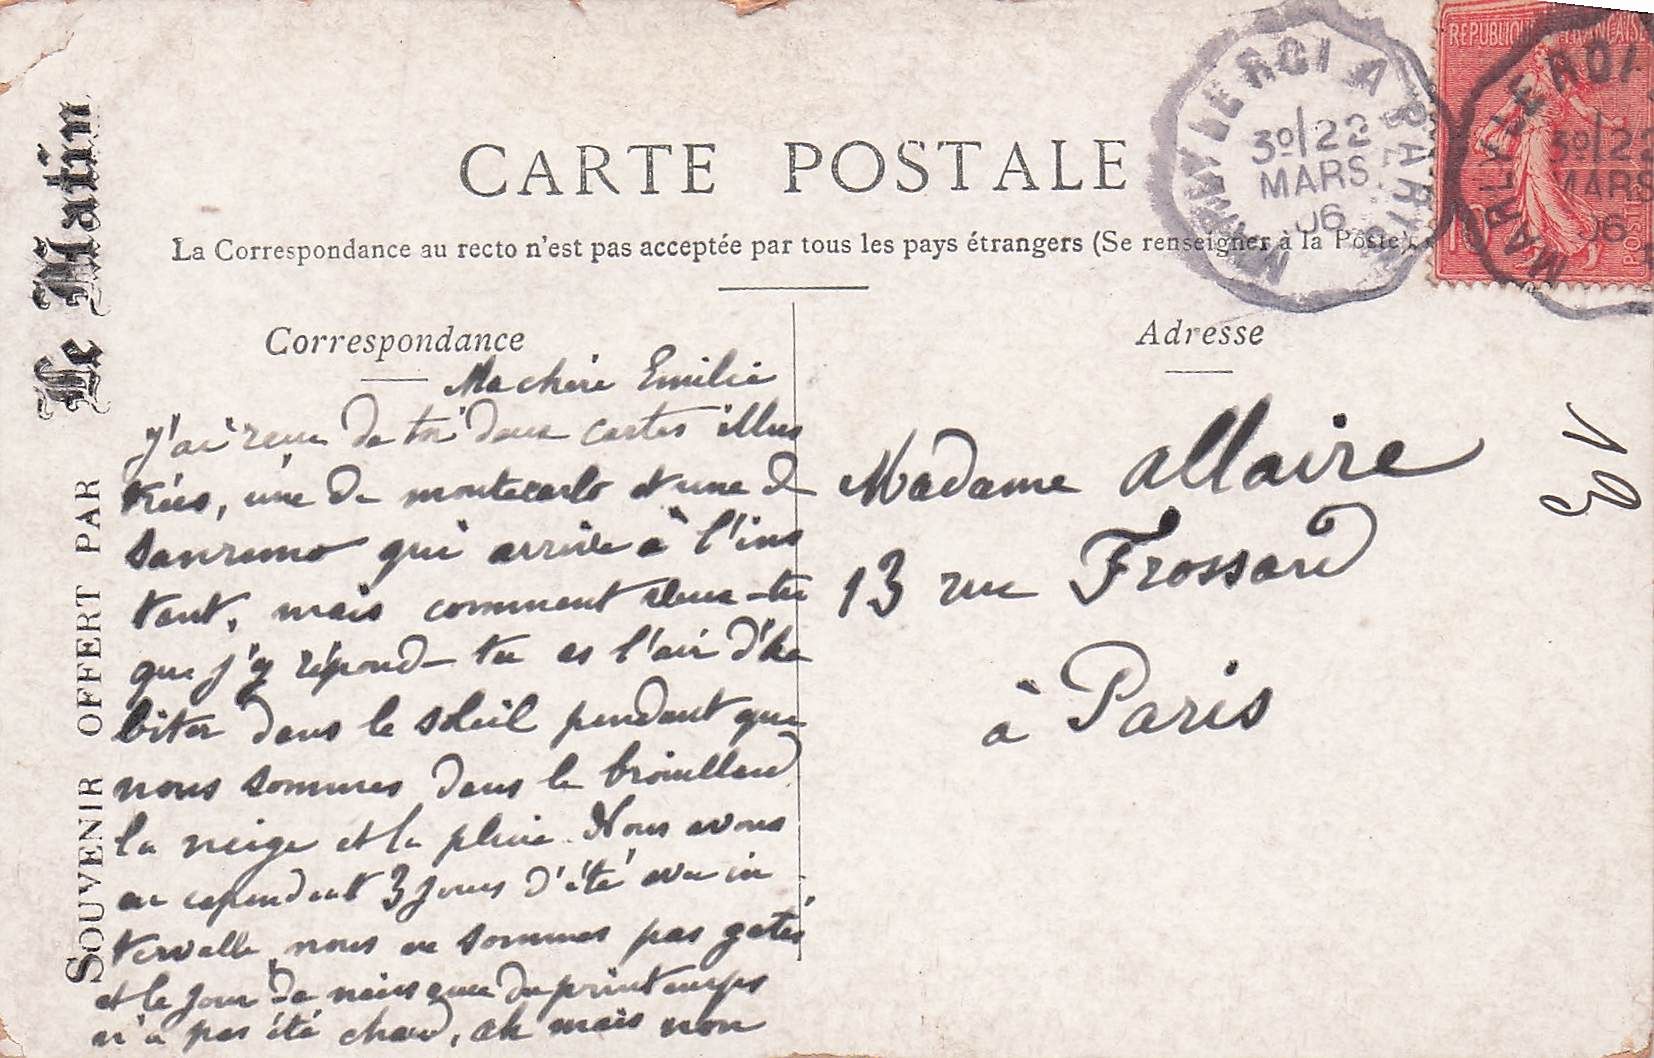 CARTE POSTALE
La Correspondance au recto n'est pas acceptée par tous les pays étrangers (Se renseigner à la Poste).
SOUVENIR OFFERT PAR Le Matin
Correspondance
Ma chère Emilie
J'ai reçu de toi deux cartes illus
trées, une de montecarlo et une de
Sanremo qui arrive à l'ins
tant, mais comment veux-tu
que j'y répond- tu as l'air d'ha
biter dans le soleil pendant que
nous sommes dans le brouillard
la neige et la pluie. Nous avons
eu cependant 3 jours d'été avec in
tervalle, nous ne sommes pas gatés
et le jour de naissance du printemps
n'a pas été chaud, ah mais non
Adresse
Madame Allaire
13 rue Frossard
à Paris
MARLY LE ROI A PARIS
3º/22
MARS
06
REPUBLIQUE FRANÇAISE
10
POSTES
MARLY LE ROI
3º/22
MARS
06